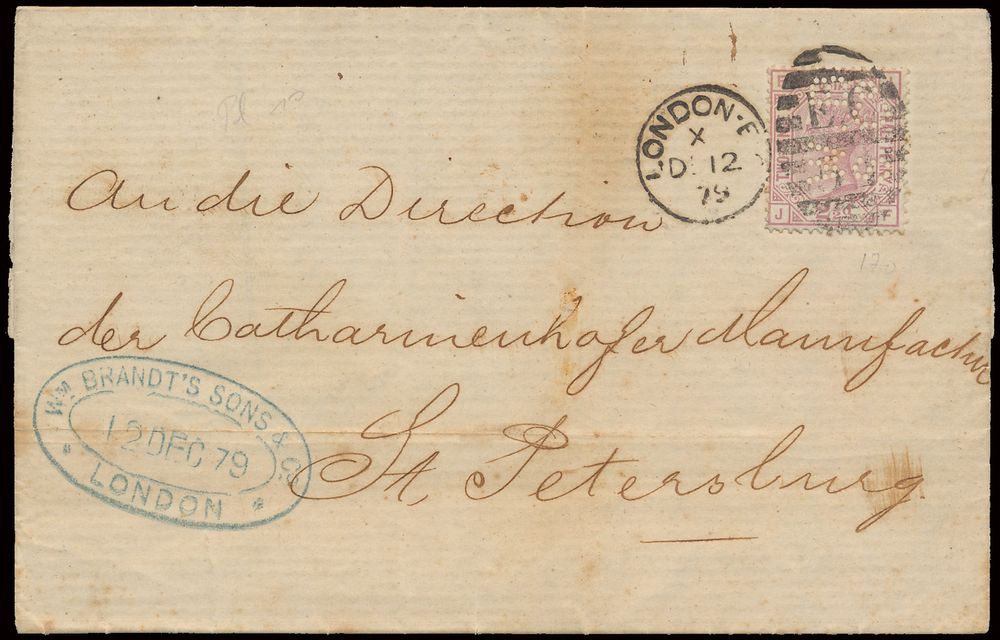 Pl 13
LONDON-E
X
DE 12
79
J F
170
An die Direction
der Catharinenhofer Manufactur
St Petersburg
WM BRANDT'S SONS & Co
12 DEC 79
LONDON